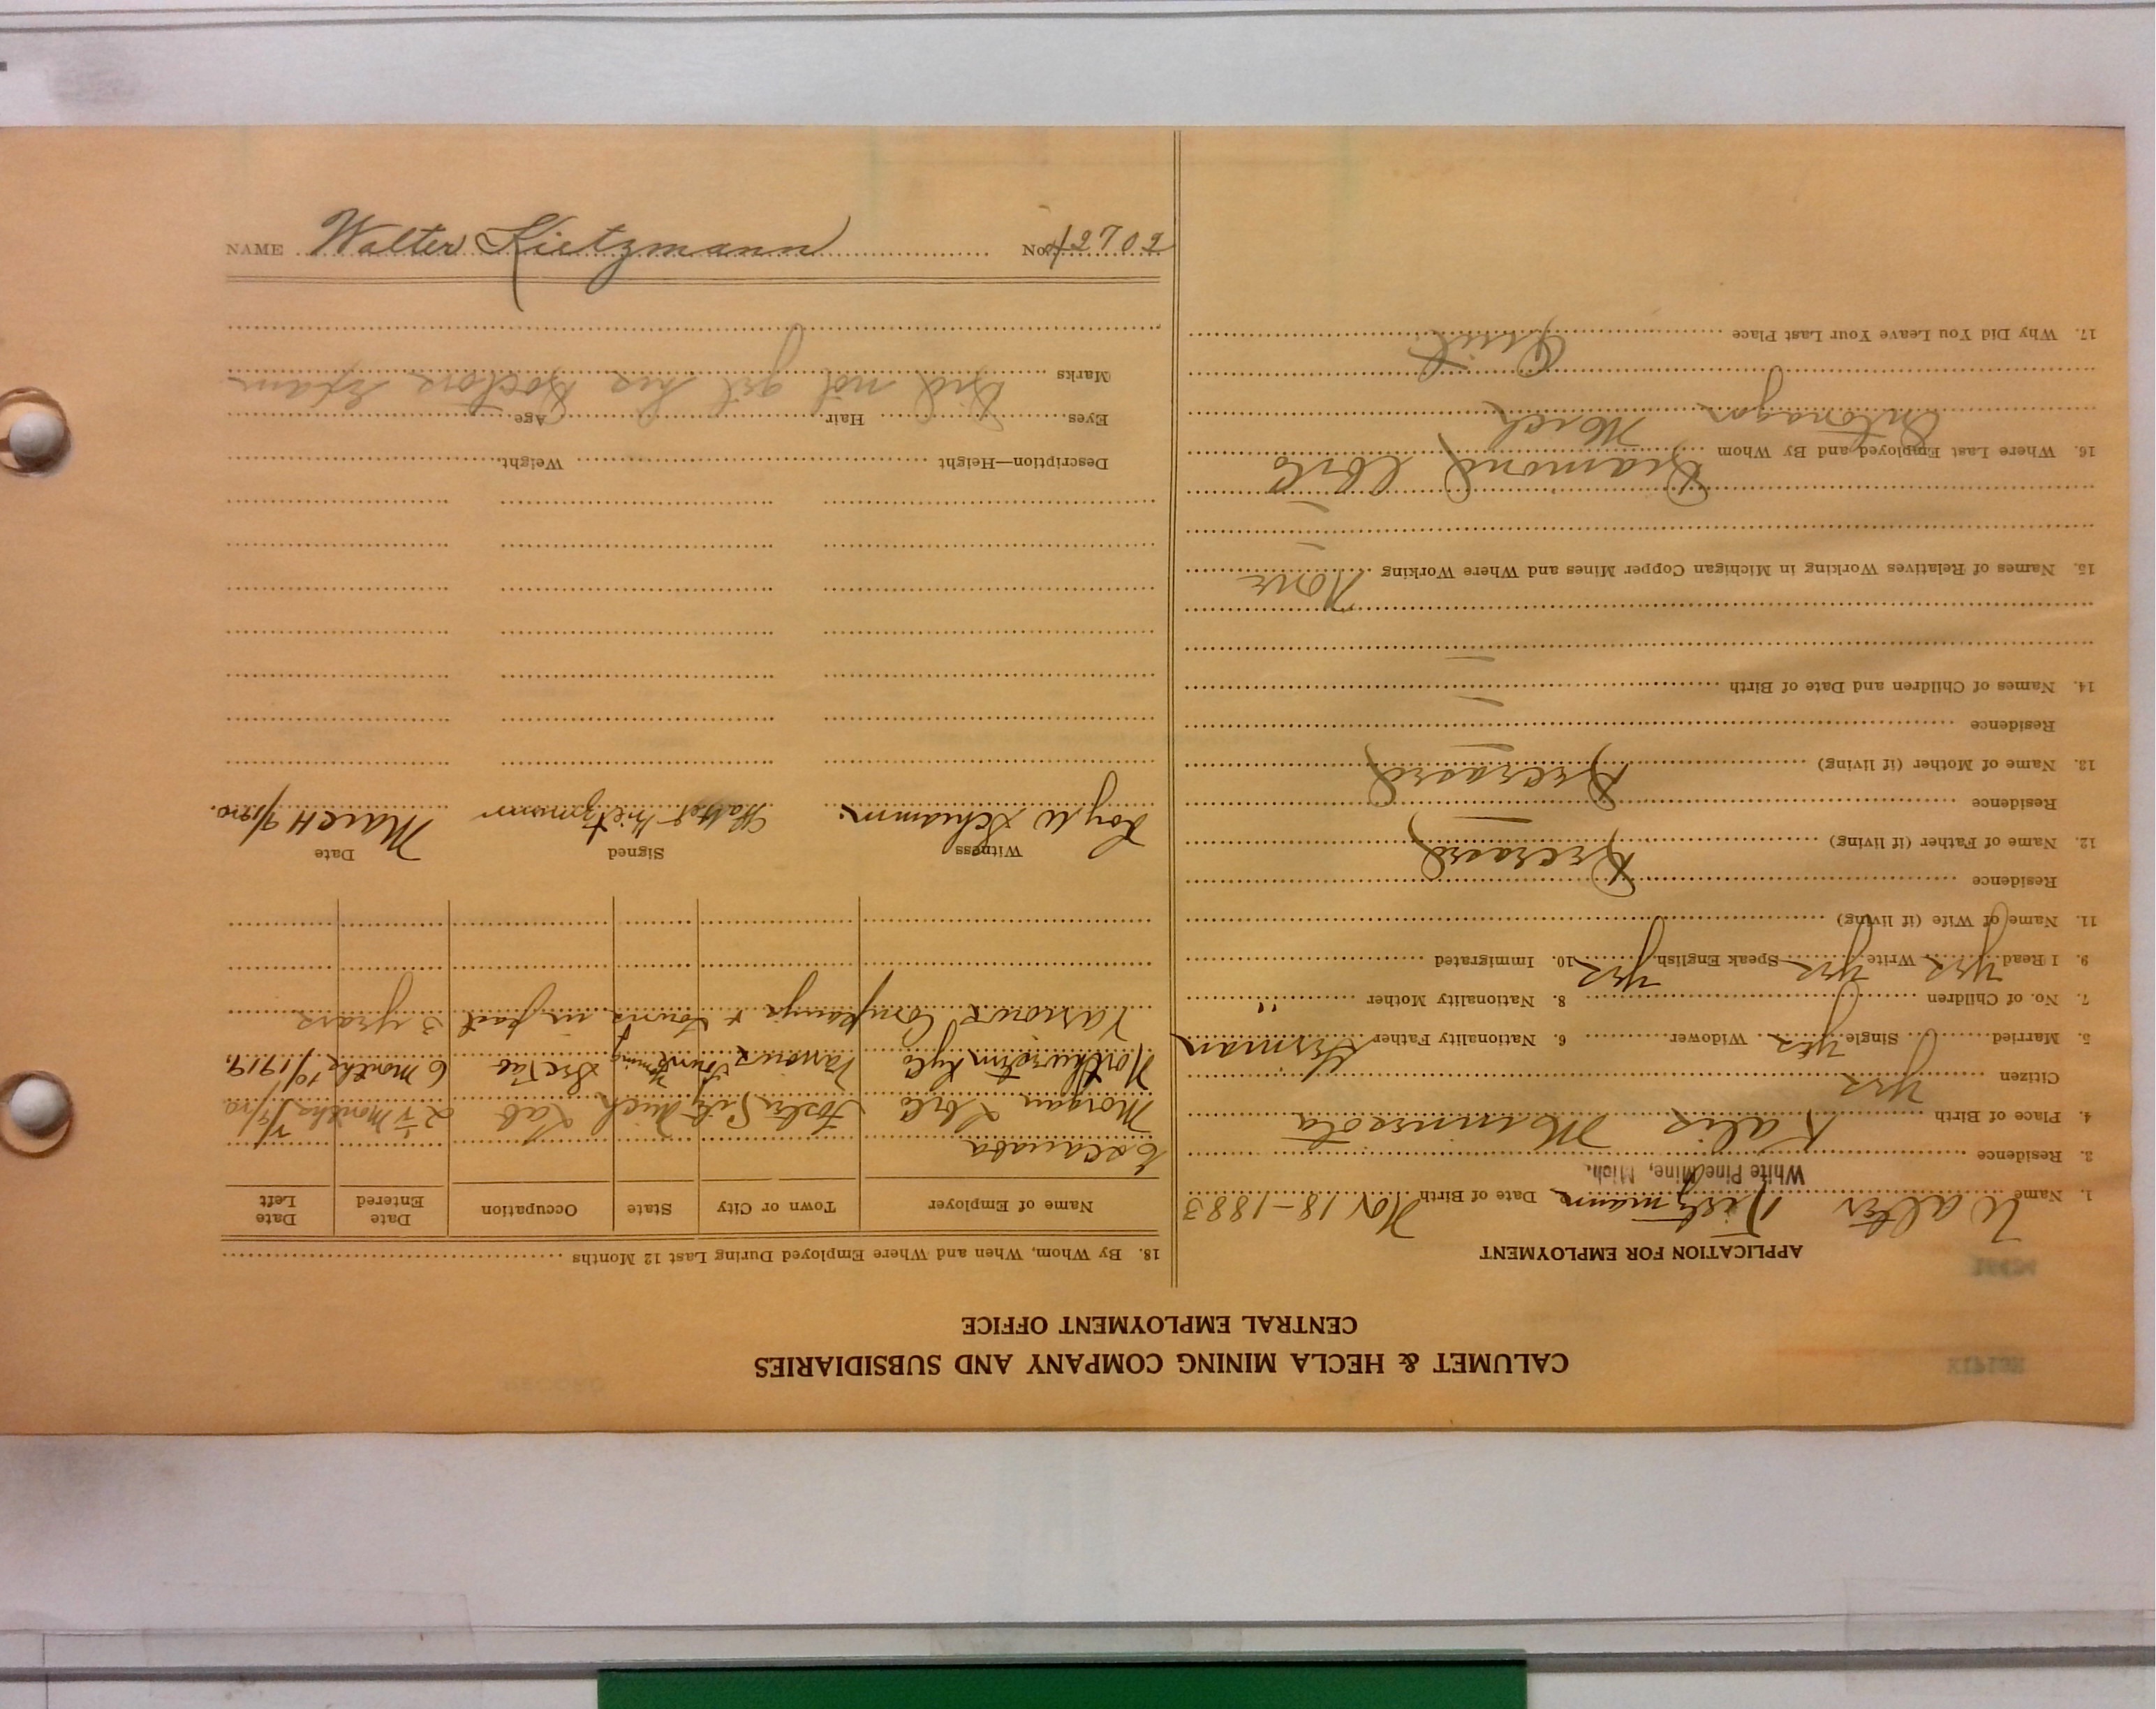 CALUMET & HECLA MINING COMPANY AND SUBSIDIARIES
CENTRAL EMPLOYMENT OFFICE
APPLICATION FOR EMPLOYMENT
1. Name Walter Kietzmann Date of Birth Nov 18-1883
White Pine Mine, Mich.
2. Residence
4. Place of Birth Minnesota
Citizen yes
5. Married Single yes Widower 6. Nationality Father German
7. No. of Children 8. Nationality Mother "
9. I Read yes Write yes Speak English yes 10. Immigrated
11. Name of Wife (if living)
Residence
12. Name of Father (if living) Deceased
Residence
13. Name of Mother (if living) Deceased
Residence
14. Names of Children and Date of Birth
15. Names of Relatives Working in Michigan Copper Mines and Where Working None
Diamond
16. Where Last Employed and By Whom
Ontonagon Mich
17. Why Did You Leave Your Last Place Quit
18. By Whom, When and Where Employed During Last 12 Months
Name of Employer Town or City State Occupation Date Entered Date Left
Escanaba
Morgan Foster City Mich Lab 2 1/2 Months
Northwestern Various Wyoming 6 Months 1919.
Various Companys & towns in past 3 years
Witness Signed Date
Schramm. Walter Kietzmann March 9/1920.
Description—Height Weight
Eyes Hair Age
Marks Did not get his Doctors Exam
NAME Walter Kietzmann No. 42702